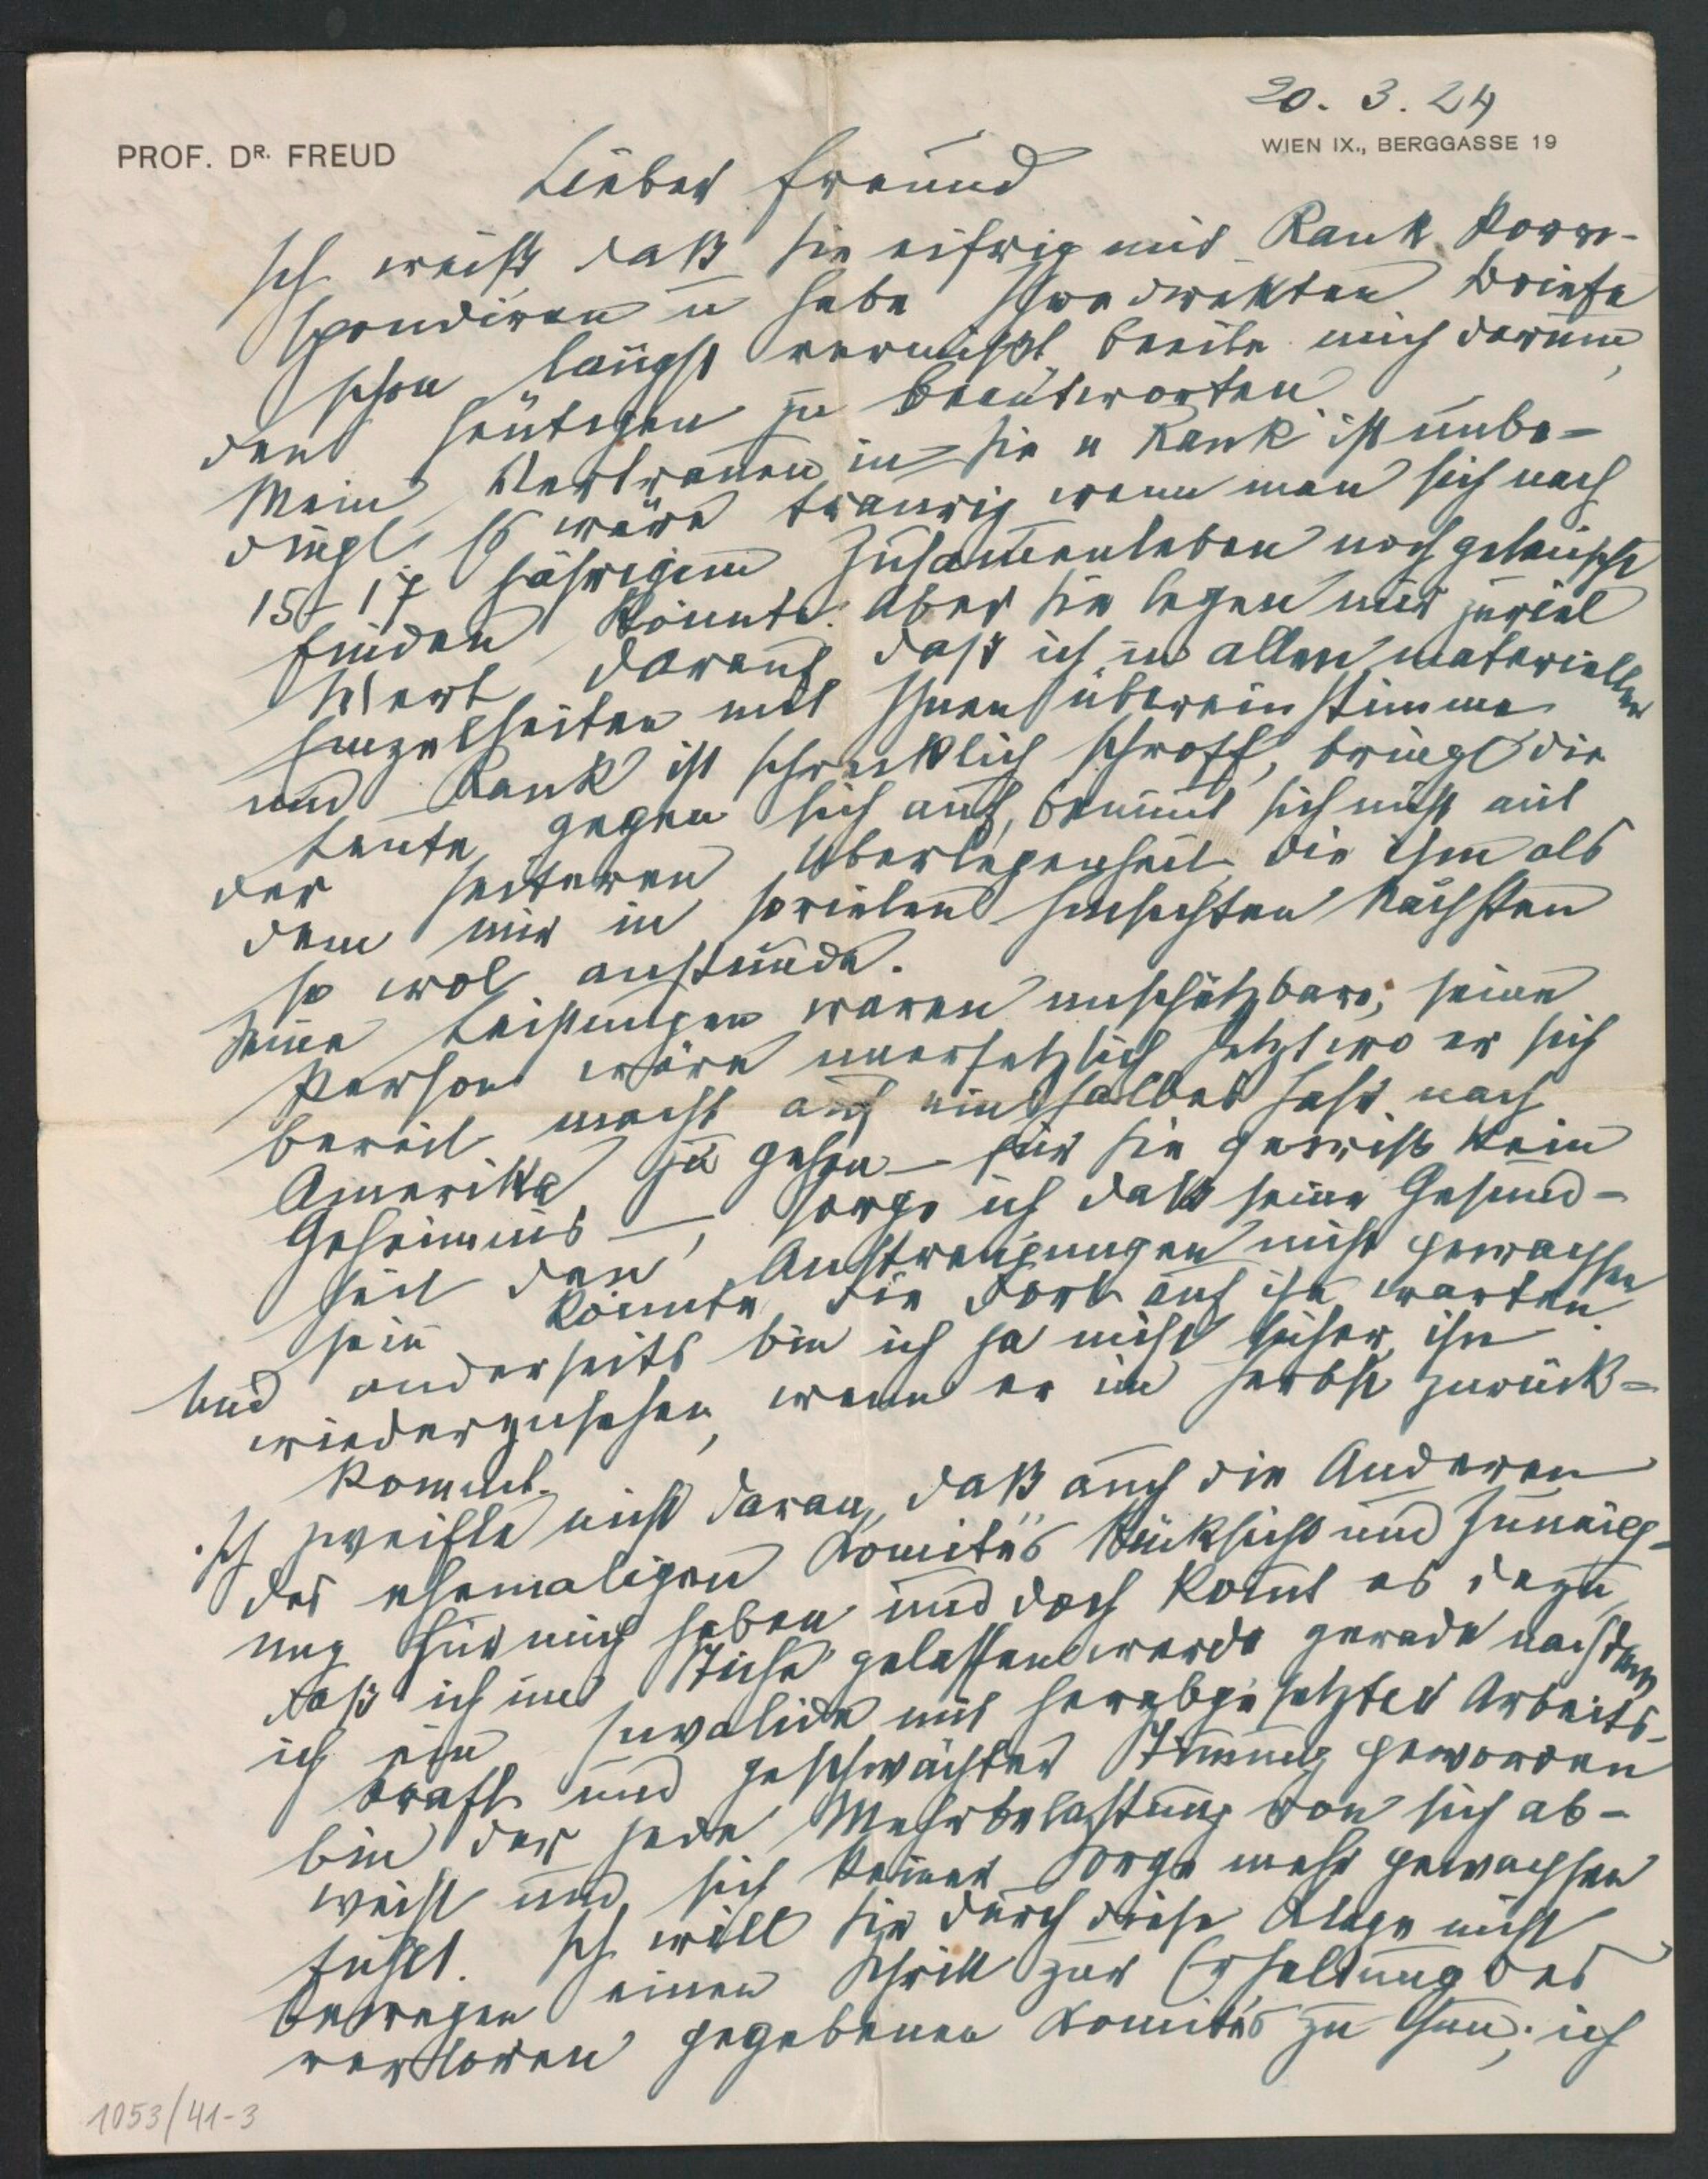 20. 3. 24
PROF. DR. FREUD
WIEN IX., BERGGASSE 19
Lieber Freund
Ich weiß daß Sie eifrig mit Rank korre-
spondiren u habe Ihre direkten Briefe
schon längst vermißt, beeile mich darum,
den heutigen zu beantworten
Mein Vertrauen in Sie u Rank ist unbe-
dingt. Es wäre traurig wenn man sich nach
15–17 jährigem Zusam̅enleben noch getäuscht
finden könnte. Aber Sie legen mir zuviel
Wert darauf, daß ich in allen materiellen
Einzelheiten mit Ihnen übereinstimme
und Rank ist schrecklich schroff, bringt die
Leute gegen sich auf, benim̅t sich nicht mit
der heiteren Überlegenheit, die ihm als
dem mir in sovielen Hinsichten Nächsten
so wol anstünde.
Seine Leistungen waren unschätzbar, seine
Person wäre unersetzlich. Jetzt wo er sich
bereit macht auf ein halbes Jahr nach
Amerika zu gehen – für Sie gewiß kein
Geheimnis –, sorge ich daß seine Gesund-
heit den Anstrengungen nicht gewachsen
sein könnte, die dort auf ihn warten.
Und anderseits bin ich ja nicht sicher, ihn
wiederzusehen, wenn er im Herbst zurück-
kommt.
Ich zweifle nicht daran, daß auch die Anderen
des ehemaligen Komités Rücksicht und Zuneig-
ung für mich haben und doch kom̅t es dazu,
daß ich im Stiche gelassen werde gerade nachdem
ich ein Invalide mit herabgesetzter Arbeits-
kraft und geschwächter Stim̅ung geworden
bin der jede Mehrbelastung von sich ab-
weist und sich keiner Sorge mehr gewachsen
fühlt. Ich will Sie durch diese Klage nicht
bewegen einen Schritt zur Erhaltung des
verloren gegebenen Komités zu thun; ich
1053/41-3